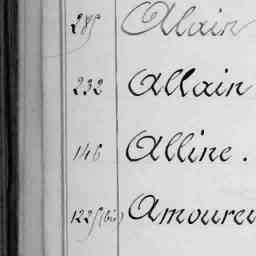 285 Alain
232 Allain
146 Alline.
122 (bis) Amoureu